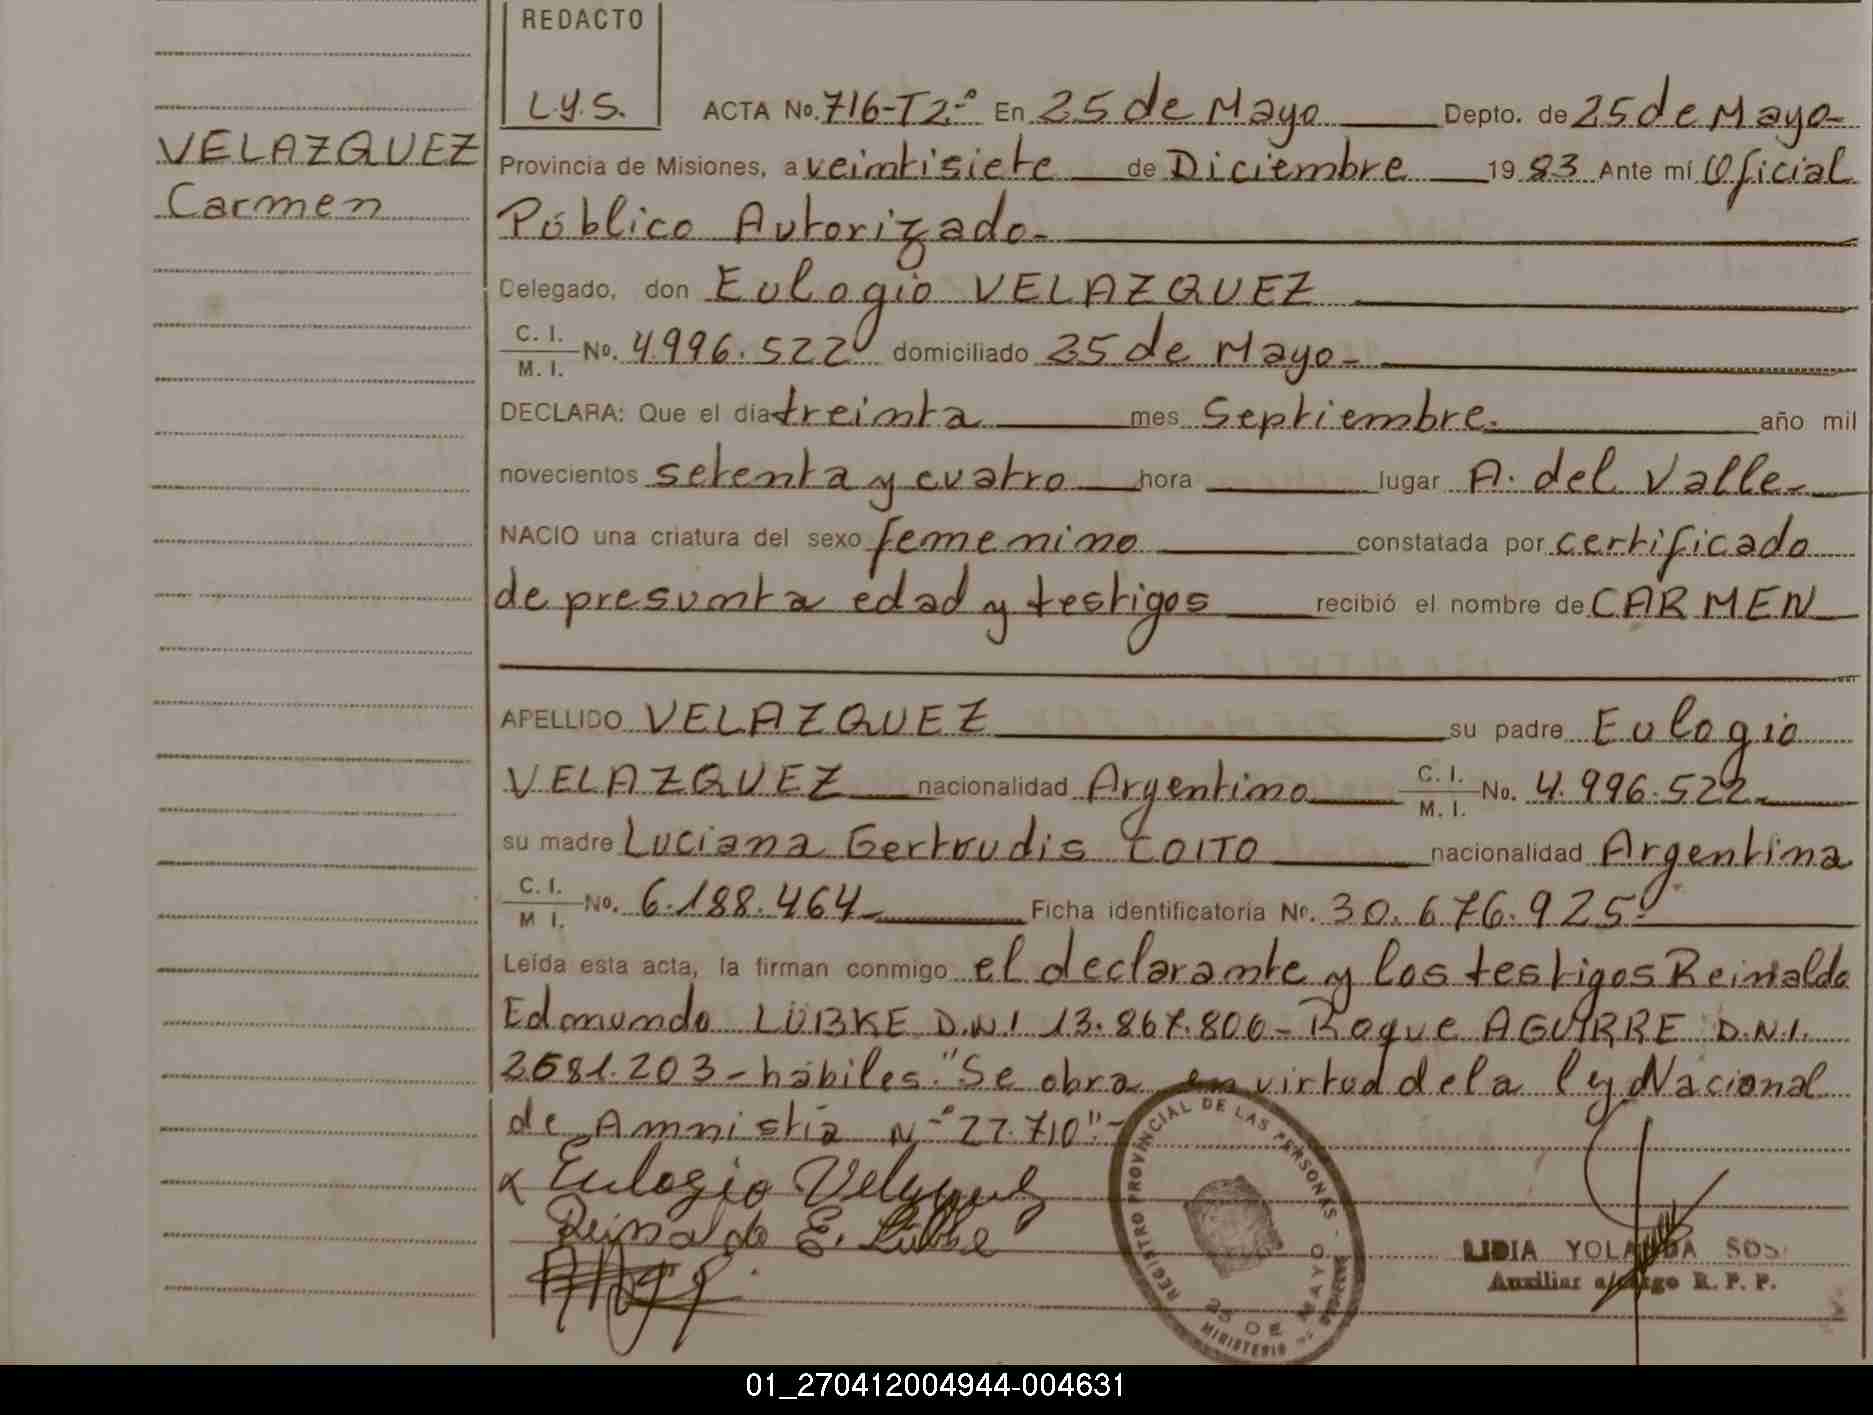 REDACTO
L.Y.S.
VELAZQUEZ
Carmen
ACTA No. 716-T2º En 25 de Mayo Depto. de 25 de Mayo-
Provincia de Misiones, a veintisiete de Diciembre 1983 Ante mí Oficial
Público Autorizado-
Celegado, don Eulogio VELAZQUEZ
C. I.
M. I. No. 4.996.522 domiciliado 25 de Mayo-
DECLARA: Que el día treinta mes Septiembre. año mil
novecientos setenta y cuatro hora lugar A. del Valle-
NACIO una criatura del sexo femenino constatada por certificado
de presunta edad y testigos recibió el nombre de CARMEN
APELLIDO VELAZQUEZ su padre Eulogio
VELAZQUEZ nacionalidad Argentino C. I.
M. I. No. 4.996.522-
su madre Luciana Gertrudis COITO nacionalidad Argentina
C. I.
M I. No. 6.188.464- Ficha identificatoria No. 30.676.925
Leída esta acta, la firman conmigo el declarante y los testigos Reinaldo
Edmundo LÜBKE D.N.I 13.867.806- Roque AGUIRRE D.N.I.
2681.203- hábiles. "Se obra en virtud de la ley Nacional
de Amnistía Nº 22.710"-
x Eulogio Velazquez
Reinaldo E. Lübke
REGISTRO PROVINCIAL DE LAS PERSONAS -
25 DE MAYO
MINISTERIO DE
LIDIA YOLANDA SOS
Auxiliar a/cargo R. P. P.
01_270412004944-004631